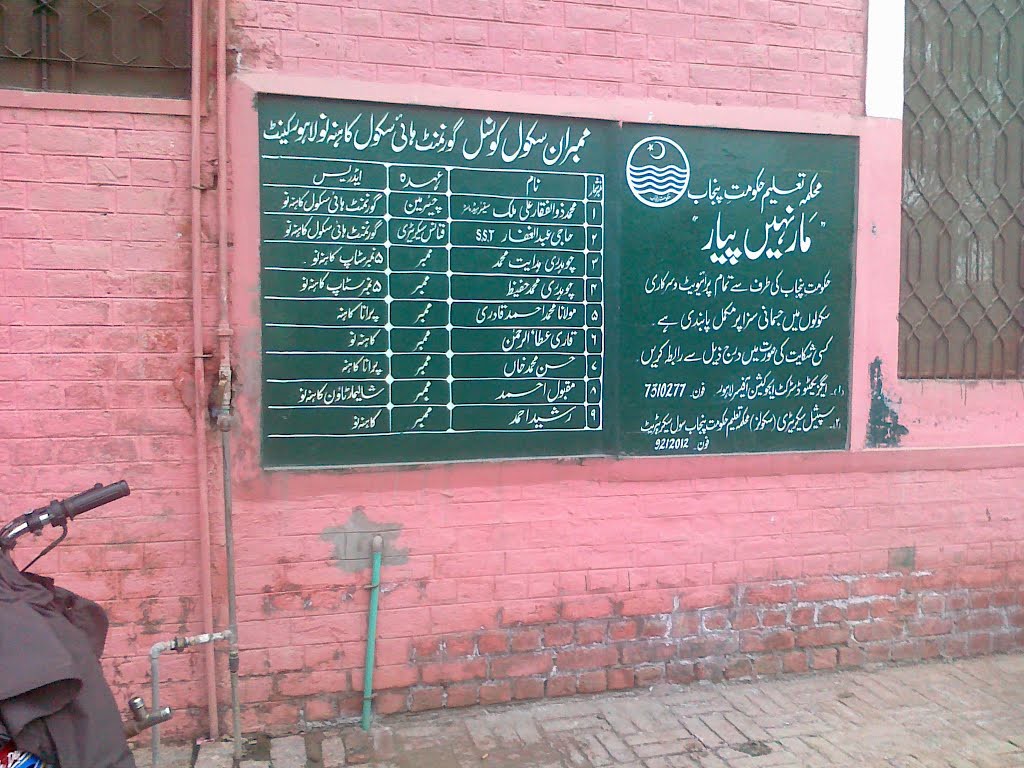 ممبران سکول کونسل گورنمنٹ ہائی سکول کاہنہ نو لاہور کینٹ
نمبر شمار نام عہدہ ایڈریس
۱ محمد ذوالفقار علی ملک سینئر ہیڈماسٹر چیئرمین گورنمنٹ ہائی سکول کاہنہ نو
۲ حاجی عبدالغفار S.S.T فنانس سیکرٹری گورنمنٹ ہائی سکول کاہنہ نو
۳ چوہدری ہدایت محمد ممبر ۵ نمبر سٹاپ کاہنہ نو
۴ چوہدری محمد حفیظ ممبر ۵ نمبر سٹاپ کاہنہ نو
۵ مولانا محمد احمد قادری ممبر پرانا کاہنہ
۶ قاری عطاء الرحمٰن ممبر کاہنہ نو
۷ حسن محمد خاں ممبر پرانا کاہنہ
۸ مقبول احمد ممبر شالیمار ٹاؤن کاہنہ نو
۹ رشید احمد ممبر کاہنہ نو
محکمہ تعلیم حکومت پنجاب
"مار نہیں پیار"
حکومت پنجاب کی طرف سے تمام پرائیویٹ و سرکاری
سکولوں میں جسمانی سزا پر مکمل پابندی ہے۔
کسی شکایت کی صورت میں درج ذیل سے رابطہ کریں
۱۔ ایگزیکٹو ڈسٹرکٹ ایجوکیشن آفیسر لاہور فون۔ 7310277
۲۔ سپیشل سیکرٹری (سکولز) محکمہ تعلیم حکومت پنجاب سول سیکرٹریٹ
فون۔ 9212012